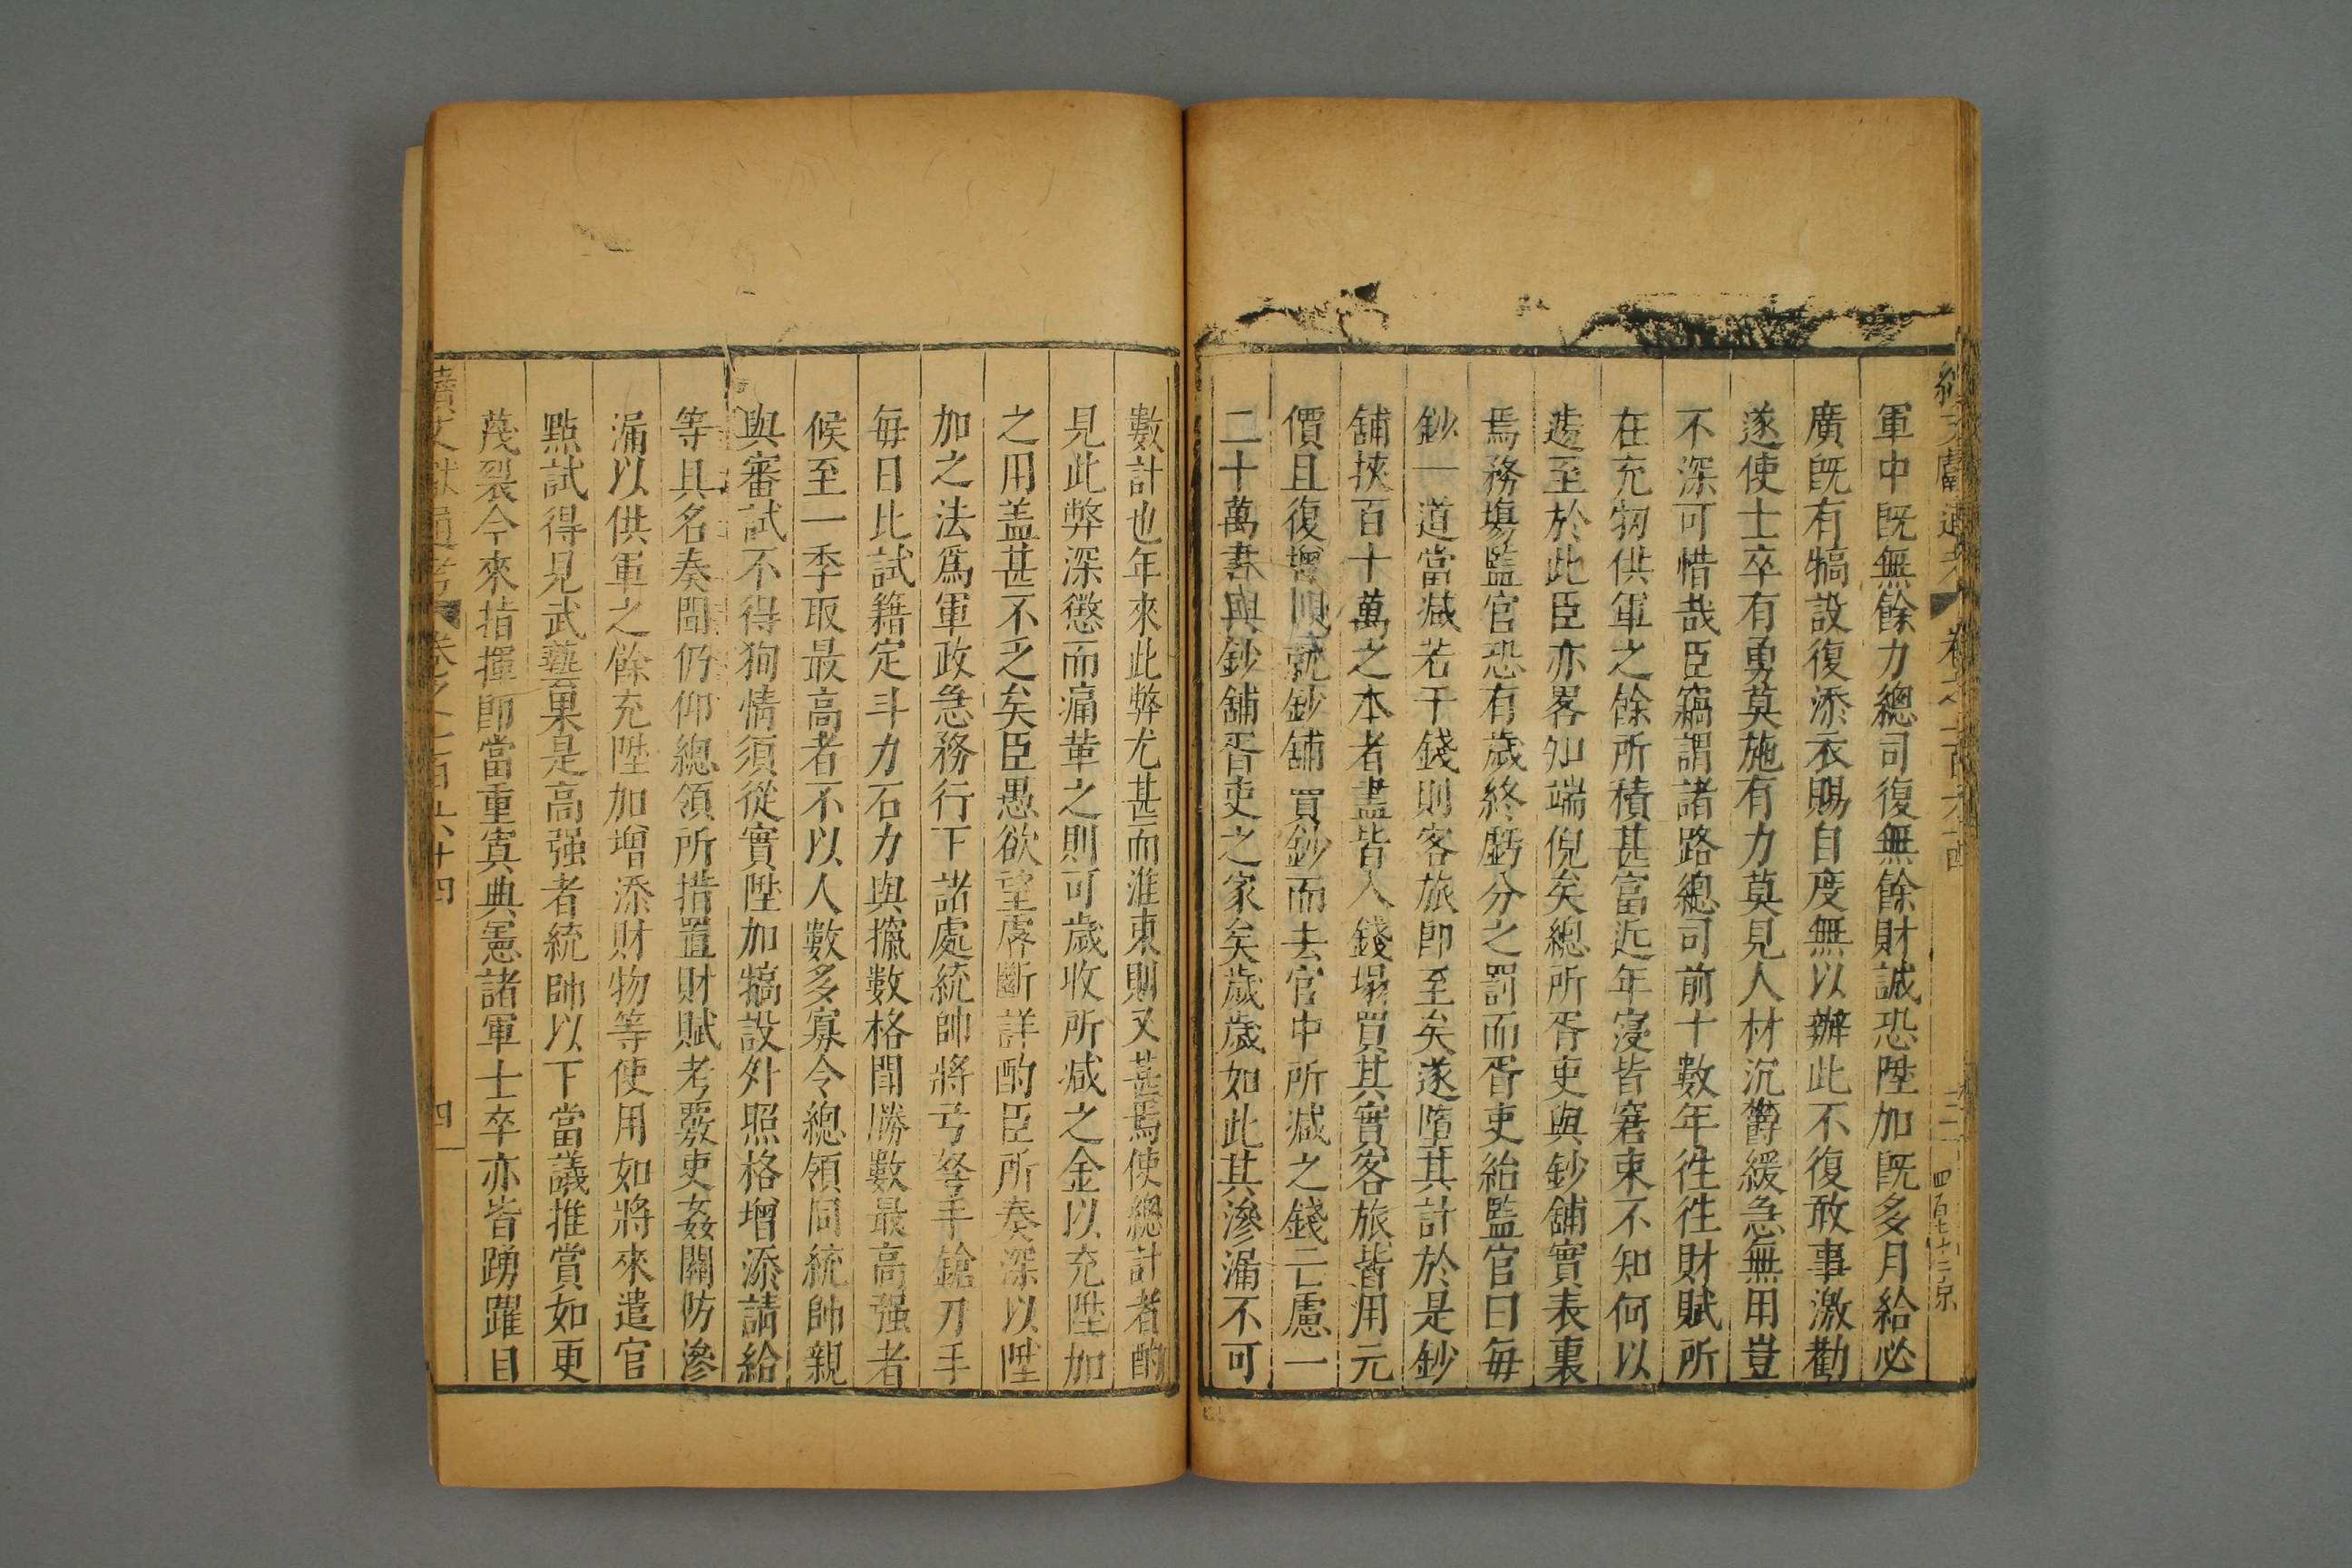 續文獻通考 卷之一百六十四 三 四百七十二
軍中既無餘力總司復無餘財誠恐陞加既多月給必
廣既有犒設復添衣賜自度無以辦此不復敢事激勸
遂使士卒有勇莫施有力莫見人材沉鬱緩急無用豈
不深可惜哉臣竊謂諸路總司前十數年徃徃財賦所
在充牣供軍之餘所積甚富近年寖皆窘束不知何以
遠至於此臣亦畧知端倪矣總所胥吏與鈔舖實表裏
焉務塲監官恐有歲終虧分之罰而胥吏紿監官曰每
鈔一道當減若干錢則客旅即至矣遂墮其計於是鈔
舖挾百十萬之本者盡皆入錢塌買其實客旅皆用元
價且復增 就鈔舖買鈔而去官中所減之錢亡慮一
二十萬畫與鈔舖胥吏之家矣歲歲如此其滲漏不可
數計也年來此弊尤甚而淮東則又甚焉使總計者酌
見此弊深懲而痛革之則可歲收所減之金以充陞加
之用盖甚不乏矣臣愚欲望睿斷詳酌臣所奏深以陞
加之法爲軍政急務行下諸處統帥將弓弩手鎗刀手
每日比試籍定斗力石力與攛數格鬪勝數最高强者
候至一季取最高者不以人數多寡令總領同統帥親
與審試不得狥情須從實陞加犒設外照格增添請給
等具名奏聞仍仰總領所措置財賦考覈吏姦關防滲
漏以供軍之餘充陞加增添財物等使用如將來遣官
點試得見武藝果是高强者統帥以下當議推賞如更
蔑裂今來指揮即當重寘典憲諸軍士卒亦皆踴躍目
續文獻通考 卷之一百六十四 四